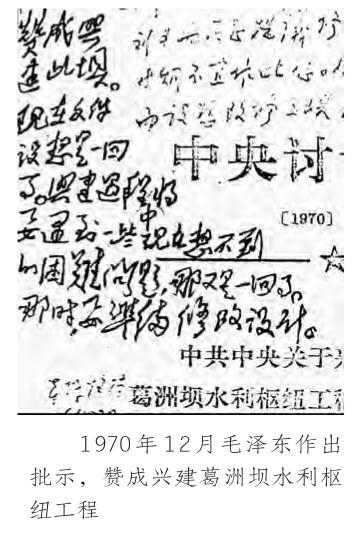 赞成興
建此坝。
现在文件
设想是一回
事。興建過程中将
要遇到一些现在想不到
的困難问题,那又是一回事。
那时,要準備修改设计。
中央讨
〔1970〕
中共中央关于
葛洲坝水利枢纽工
1970年12月毛泽东作出
批示，赞成兴建葛洲坝水利枢
纽工程